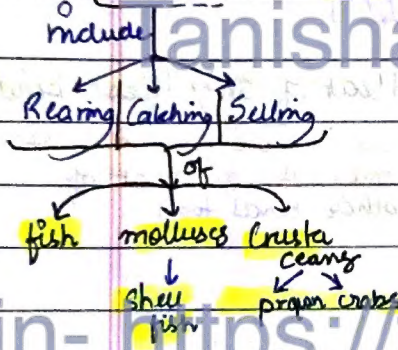 include
Tanisha
Rearing Catching Selling
of
fish molluscs Crusta
ceans
Shell prawn crabs
fish
in- https://